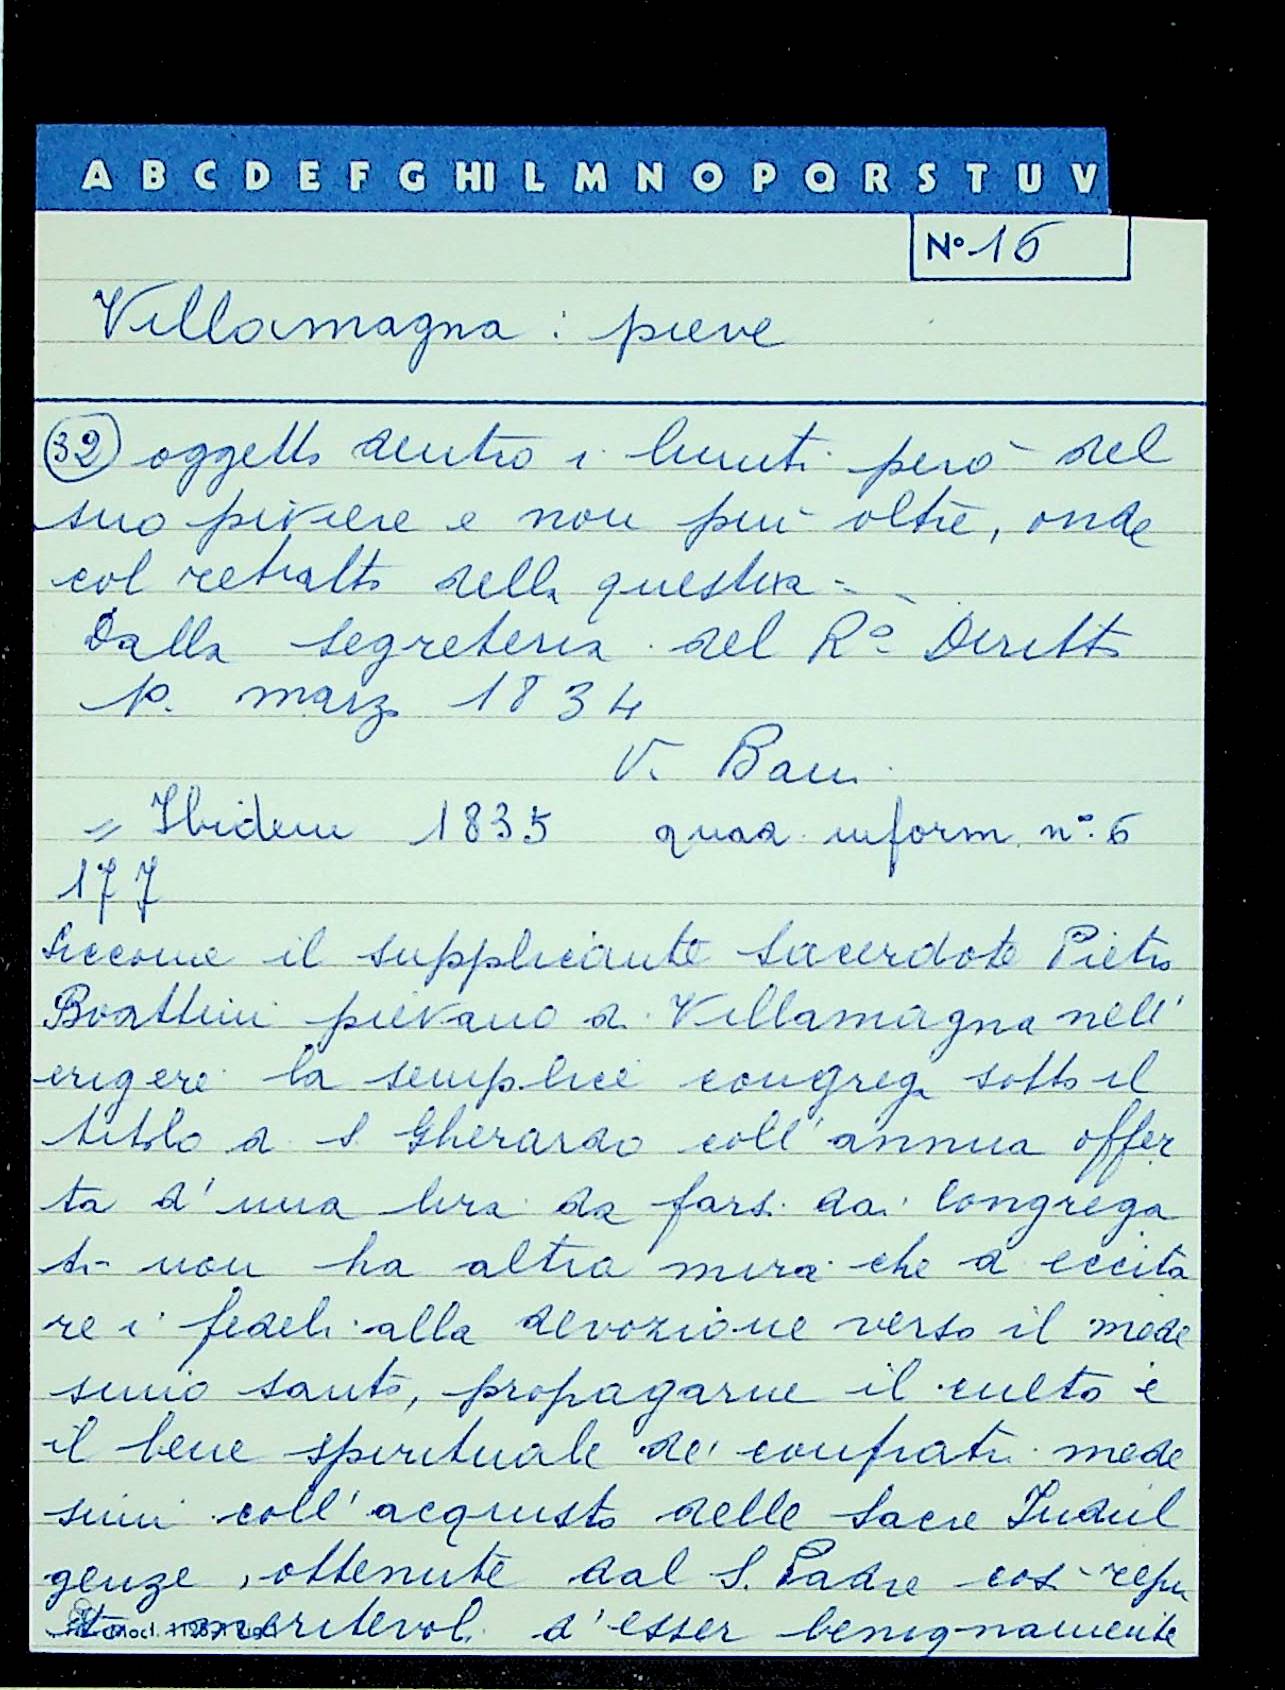 A B C D E F G HI L M N O P Q R S T U V
N° 16
Villamagna : pieve
32 oggetto dentro i limiti però del
suo piviere e non più oltre, onde
col retratto della questua -
Dalla segreteria del R° Diritto
p. marzo 1834
V. Bani
= Ibidem 1835 quad. inform. n°. 6
177
Siccome il supplicante sacerdote Pietro
Boattini pievano di Villamagna nell'
erigere la semplice congreg. sotto il
titolo di S. Gherardo coll'annua offer
ta d'una lira da farsi dai Congrega
ti non ha altra mira che di eccita
re i fedeli alla devozione verso il mede
simo santo, propagarne il culto e
il bene spirituale de' confrati mede
simi coll'acquisto delle Sacre Indul
genze, ottenute dal S. Padre così repu
to meritevole d'esser benignamente